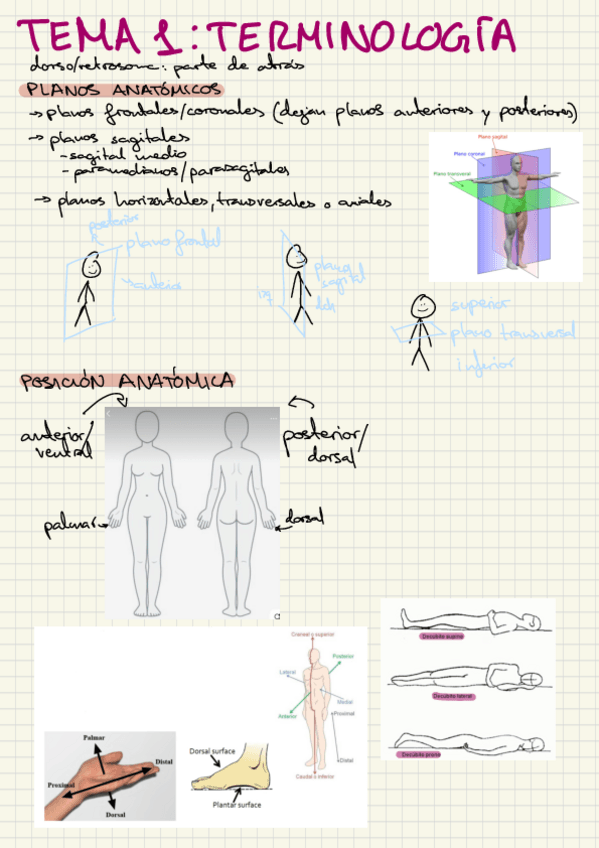 TEMA 1: TERMINOLOGÍA
dorso/retrosomc: parte de atrás
PLANOS ANATÓMICOS
→ planos frontales/coronales (dejan planos anteriores y posteriores)
→ planos sagitales
- sagital medio
- paramedianos/parasagitales
→ planos horizontales, transversales o axiales
Plano sagital
Plano coronal
Plano transversal
posterior
plano frontal
anterior
plano
sagital
izq
dch
superior
plano transversal
inferior
POSICIÓN ANATÓMICA
anterior/
ventral
posterior/
dorsal
palmar
dorsal
Craneal o superior
Posterior
Lateral
Medial
Anterior
Proximal
Distal
Caudal o inferior
Palmar
Distal
Proximal
Dorsal
Dorsal surface
Plantar surface
Decúbito supino
Decúbito lateral
Decúbito prono